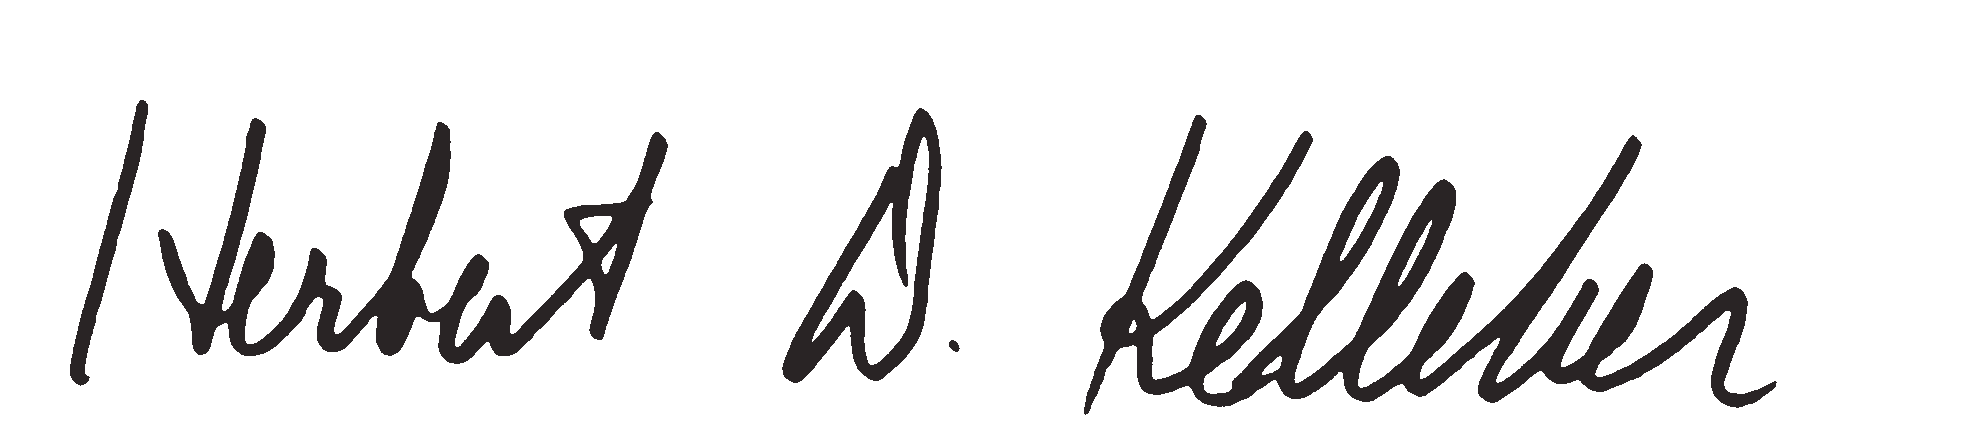 Herbert D. Kelleher